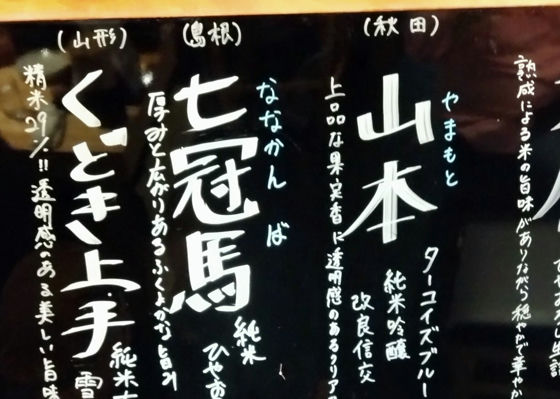 熟成による米の旨味がありながら穏やかで華やか
(秋田)
やまもと
山本
ターコイズブルー
純米吟醸
改良信交
上品な果実香に透明感のあるクリア
(島根)
ななかんば
七冠馬
純米
ひやお
厚みと広がりあるふくよかな旨み
(山形)
くどき上手
純米
雪
精米29%!!透明感のある美しい旨味